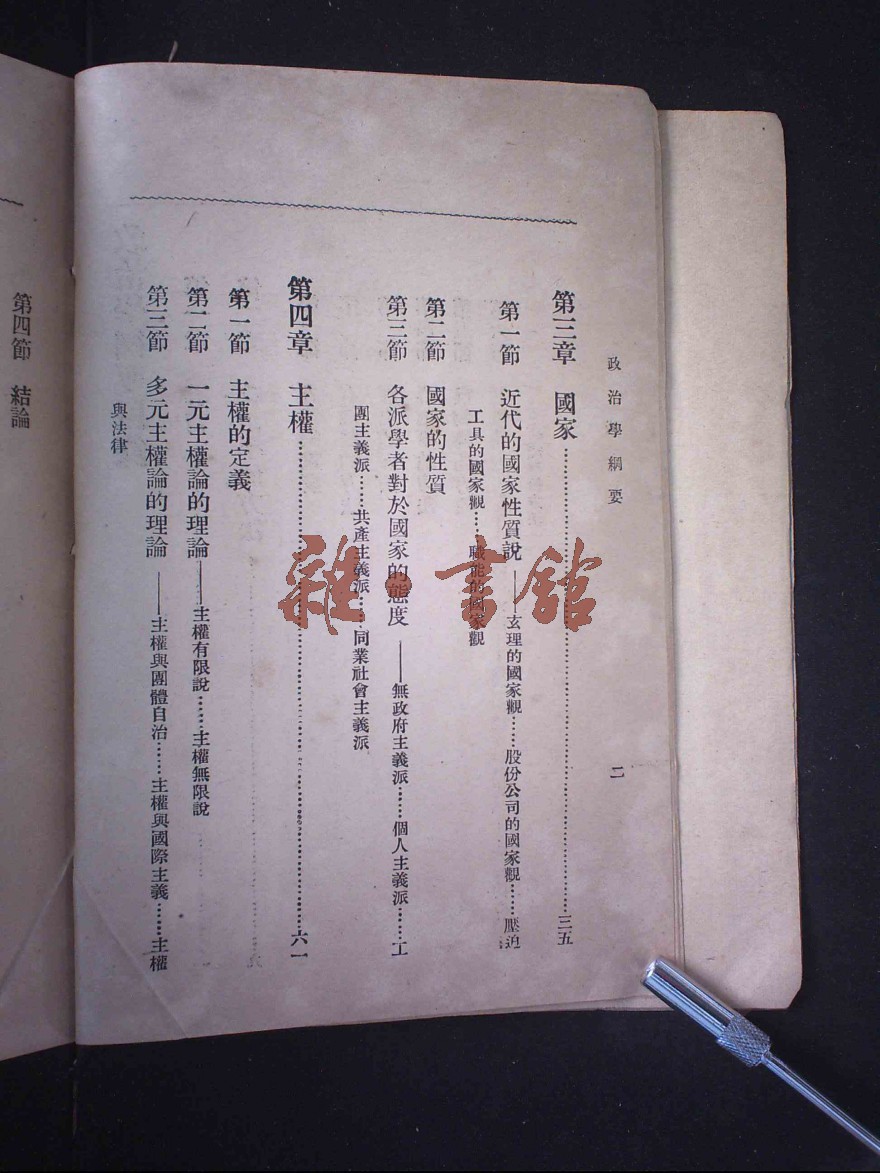 政治學綱要
二
第三章　國家……三五
第一節　近代的國家性質說——玄理的國家觀……股份公司的國家觀……壓迫
工具的國家觀……職能的國家觀
第二節　國家的性質
第三節　各派學者對於國家的態度——無政府主義派……個人主義派……工
團主義派……共產主義派……同業社會主義派
第四章　主權……六一
第一節　主權的定義
第二節　一元主權論的理論——主權有限說……主權無限說
第三節　多元主權論的理論——主權與團體自治……主權與國際主義……主權
與法律
第四節　結論
雜·書館